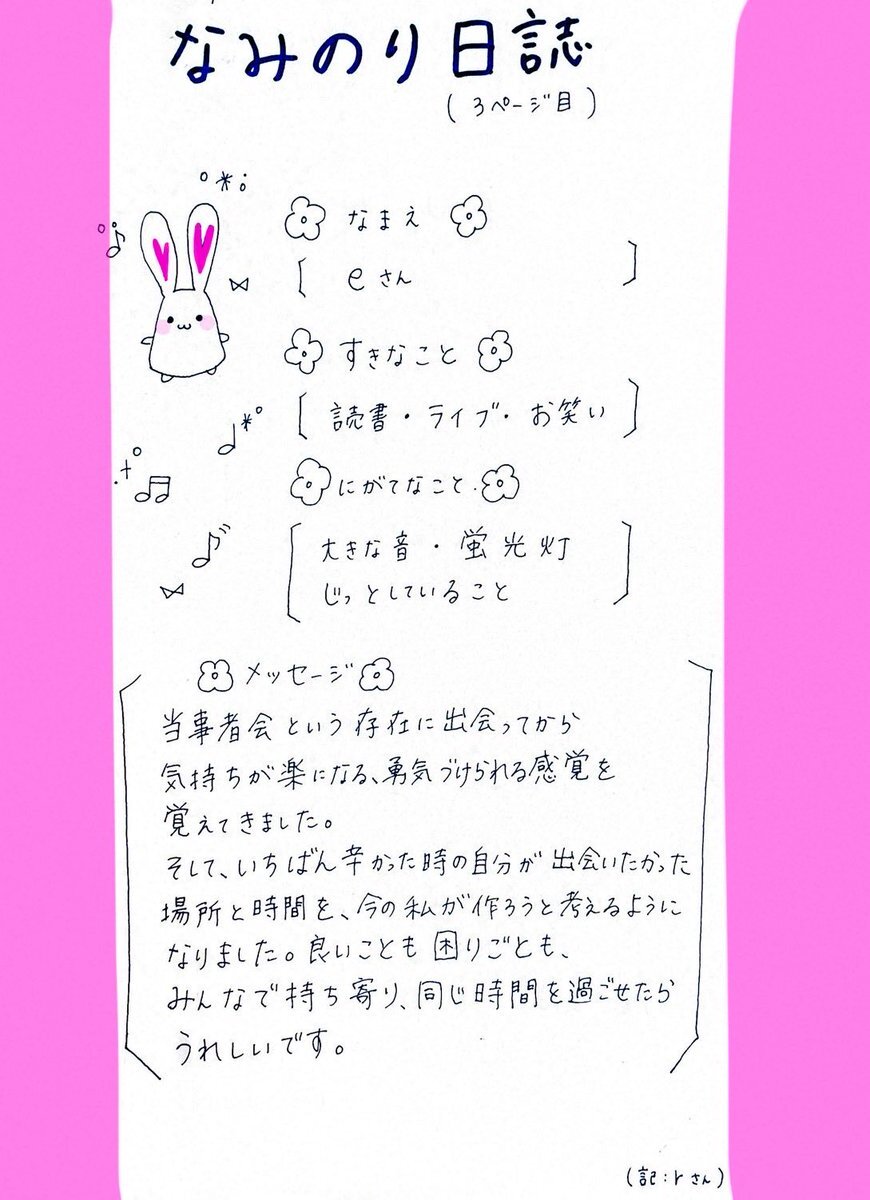 なみのり日誌
(3ページ目)
なまえ
[ eさん ]
すきなこと
[ 読書・ライブ・お笑い ]
にがてなこと
[ 大きな音・蛍光灯
じっとしていること ]
メッセージ
当事者会という存在に出会ってから
気持ちが楽になる、勇気づけられる感覚を
覚えてきました。
そして、いちばん辛かった時の自分が出会いたかった
場所と時間を、今の私が作ろうと考えるように
なりました。良いことも困りごとも、
みんなで持ち寄り、同じ時間を過ごせたら
うれしいです。
(記:rさん)